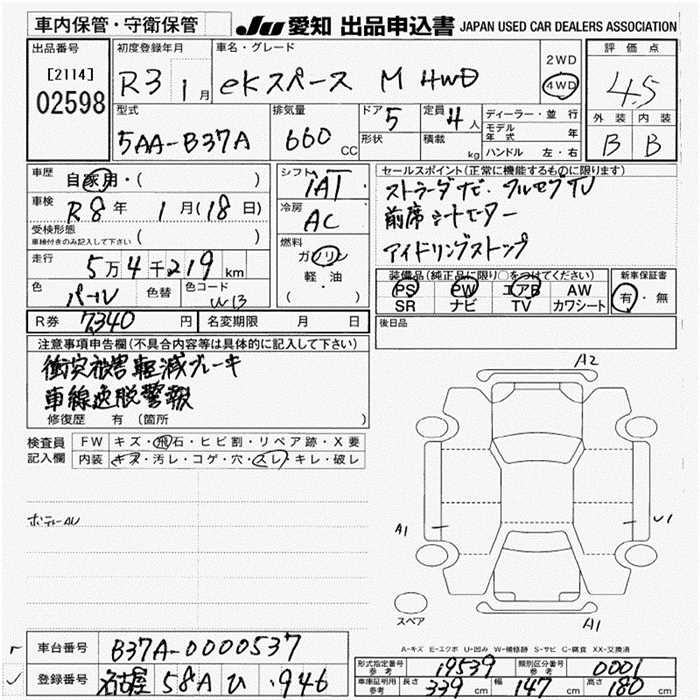 車内保管・守衛保管
JU 愛知 出品申込書 JAPAN USED CAR DEALERS ASSOCIATION
出品番号
[2114]
02598
初度登録年月
R3 1月
車名・グレード
eKスペース M 4WD
2WD
4WD
評価点
4.5
外装 内装
B B
型式
5AA-B37A
排気量
660 CC
ドア 5
形状
定員 4人
積載 kg
ディーラー・並行
モデル年式 年
ハンドル 左・右
車歴
自家用・( )
車検
R8年 1月(18日)
受検形態
車検付きのみ記入して下さい ( )
走行
5万4千219km
色
パール
色替
色コード
W13
シフト
IAT
冷房
AC
燃料
ガソリン
軽・油
( ・ )
セールスポイント(正常に機能するものに限ります)
ストラーダナビ・フルセグTV
前席シートヒーター
アイドリングストップ
装備品(純正品に限り○をつけてください)
PS PW エアB AW
SR ナビ TV カワシート
新車保証書
有・無
R券 7,340円
名変期限 月 日
後日品
注意事項申告欄(不具合内容等は具体的に記入して下さい)
衝突被害軽減ブレーキ
車線逸脱警報
修復歴 有(箇所 )
検査員記入欄
FW キズ・飛石・ヒビ割・リペア跡・X要
内装 キズ・汚レ・コゲ・穴・スレ・キレ・破レ
A2
A1
U1
A1
スペア
A-キズ E-エクボ U-凹み W-補修跡 S-サビ C-腐食 XX-交換済
車台番号 B37A-0000537
登録番号 名古屋 58A ひ ・946
形式指定番号 参考 19539
類別区分番号 参考 0001
車庫証明用 参考 長さ 339cm 幅 147cm 高さ 180cm